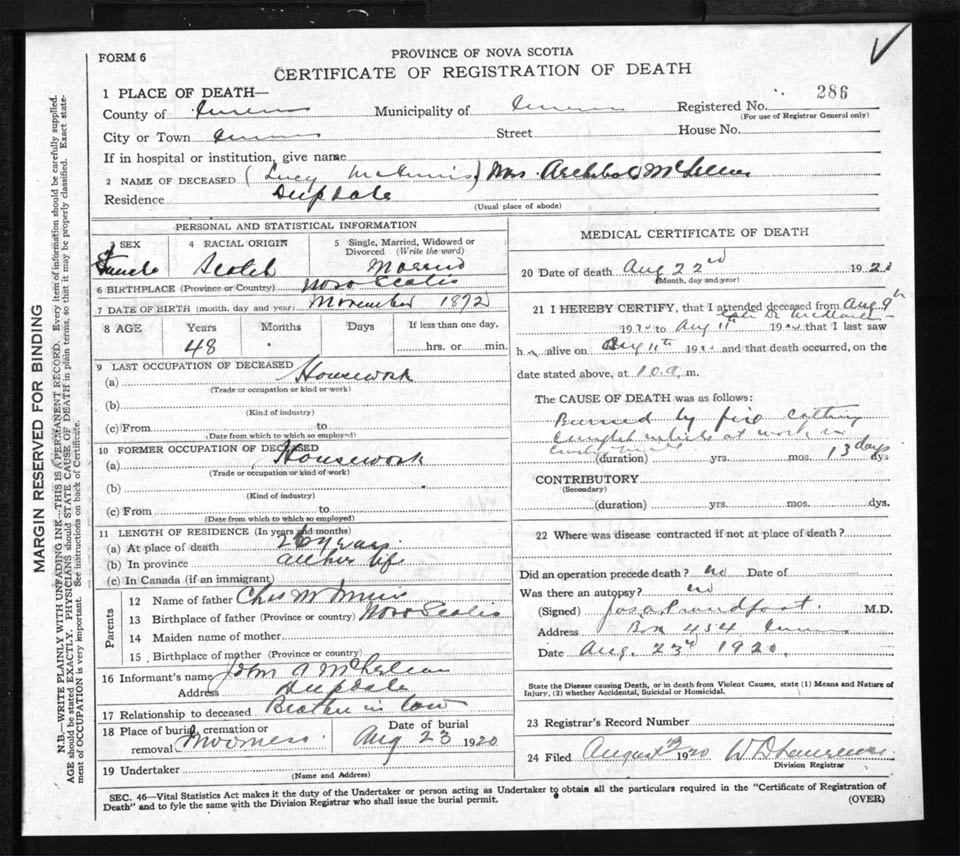 FORM 6
PROVINCE OF NOVA SCOTIA
CERTIFICATE OF REGISTRATION OF DEATH
1 PLACE OF DEATH—
County of Inverness Municipality of Inverness Registered No. 286
(For use of Registrar General only)
City or Town Inverness Street House No.
If in hospital or institution, give name
2 NAME OF DECEASED (Lucy McInnis) Mrs. Archibald McLellan
Residence Deepdale
(Usual place of abode)
PERSONAL AND STATISTICAL INFORMATION
3 SEX Female
4 RACIAL ORIGIN Scotch
5 Single, Married, Widowed or Divorced (Write the word) Married
6 BIRTHPLACE (Province or Country) Nova Scotia
7 DATE OF BIRTH (month, day and year) November 1872
8 AGE Years Months Days If less than one day,
48 hrs. or min.
9 LAST OCCUPATION OF DECEASED
(a) Housework
(Trade or occupation or kind or work)
(b)
(Kind of industry)
(c) From to
(Date from which to which so employed)
10 FORMER OCCUPATION OF DECEASED
(a) Housework
(Trade or occupation or kind of work)
(b)
(Kind of industry)
(c) From to
(Date from which to which so employed)
11 LENGTH OF RESIDENCE (In years and months)
(a) At place of death 26 years
(b) In province all her life
(c) In Canada (if an immigrant)
Parents
12 Name of father Chas McInnis
13 Birthplace of father (Province or country) Nova Scotia
14 Maiden name of mother
15 Birthplace of mother (Province or country)
16 Informant's name John A McLellan
Address Deepdale
17 Relationship to deceased Brother in law
18 Place of burial, cremation or removal
Date of burial Aug 23 1920
19 Undertaker
(Name and Address)
MEDICAL CERTIFICATE OF DEATH
20 Date of death Aug 22nd 192
(Month, day and year)
21 I HEREBY CERTIFY, that I attended deceased from Aug 9th
19 to Aug 11th 19 that I last saw
h alive on Aug 11th 19 and that death occurred, on the
date stated above, at 10 a. m.
The CAUSE OF DEATH was as follows:
Burned by fire
caught while at work in
(duration) yrs. mos. 13 days dys
CONTRIBUTORY
(Secondary)
(duration) yrs. mos. dys.
22 Where was disease contracted if not at place of death?
Did an operation precede death? no Date of
Was there an autopsy? no
(Signed) M.D.
Address Box 454 Inverness
Date Aug. 23rd 1920.
State the Disease causing Death, or in death from Violent Causes, state (1) Means and Nature of
Injury, (2) whether Accidental, Suicidal or Homicidal.
23 Registrar's Record Number
24 Filed August 1920
Division Registrar
SEC. 46—Vital Statistics Act makes it the duty of the Undertaker or person acting as Undertaker to obtain all the particulars required in the "Certificate of Registration of
Death" and to fyle the same with the Division Registrar who shall issue the burial permit.
(OVER)
MARGIN RESERVED FOR BINDING
N.B.—WRITE PLAINLY WITH UNFADING INK—THIS IS A PERMANENT RECORD. Every item of information should be carefully supplied.
AGE should be stated EXACTLY. PHYSICIANS should STATE CAUSE OF DEATH in plain terms, so that it may be properly classified. Exact state-
ment of OCCUPATION is very important. See instructions on back of Certificate.